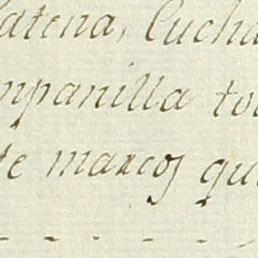 Patena, Cucha
mpanilla to
te marcos qu